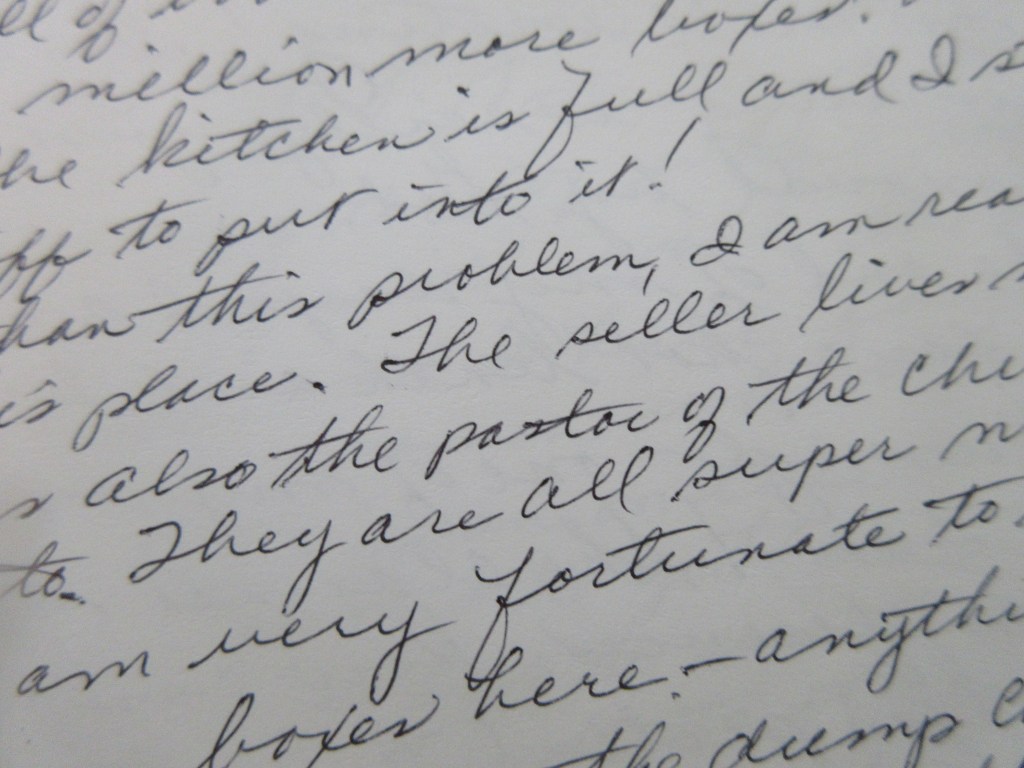 ll of
million more boxes.
the kitchen is full and I s
ff to put into it!
han this problem, I am rea
is place. The seller lives
s also the pastor of the chu
to. They are all super n
am very fortunate to
boxes here - anythi
the dump c